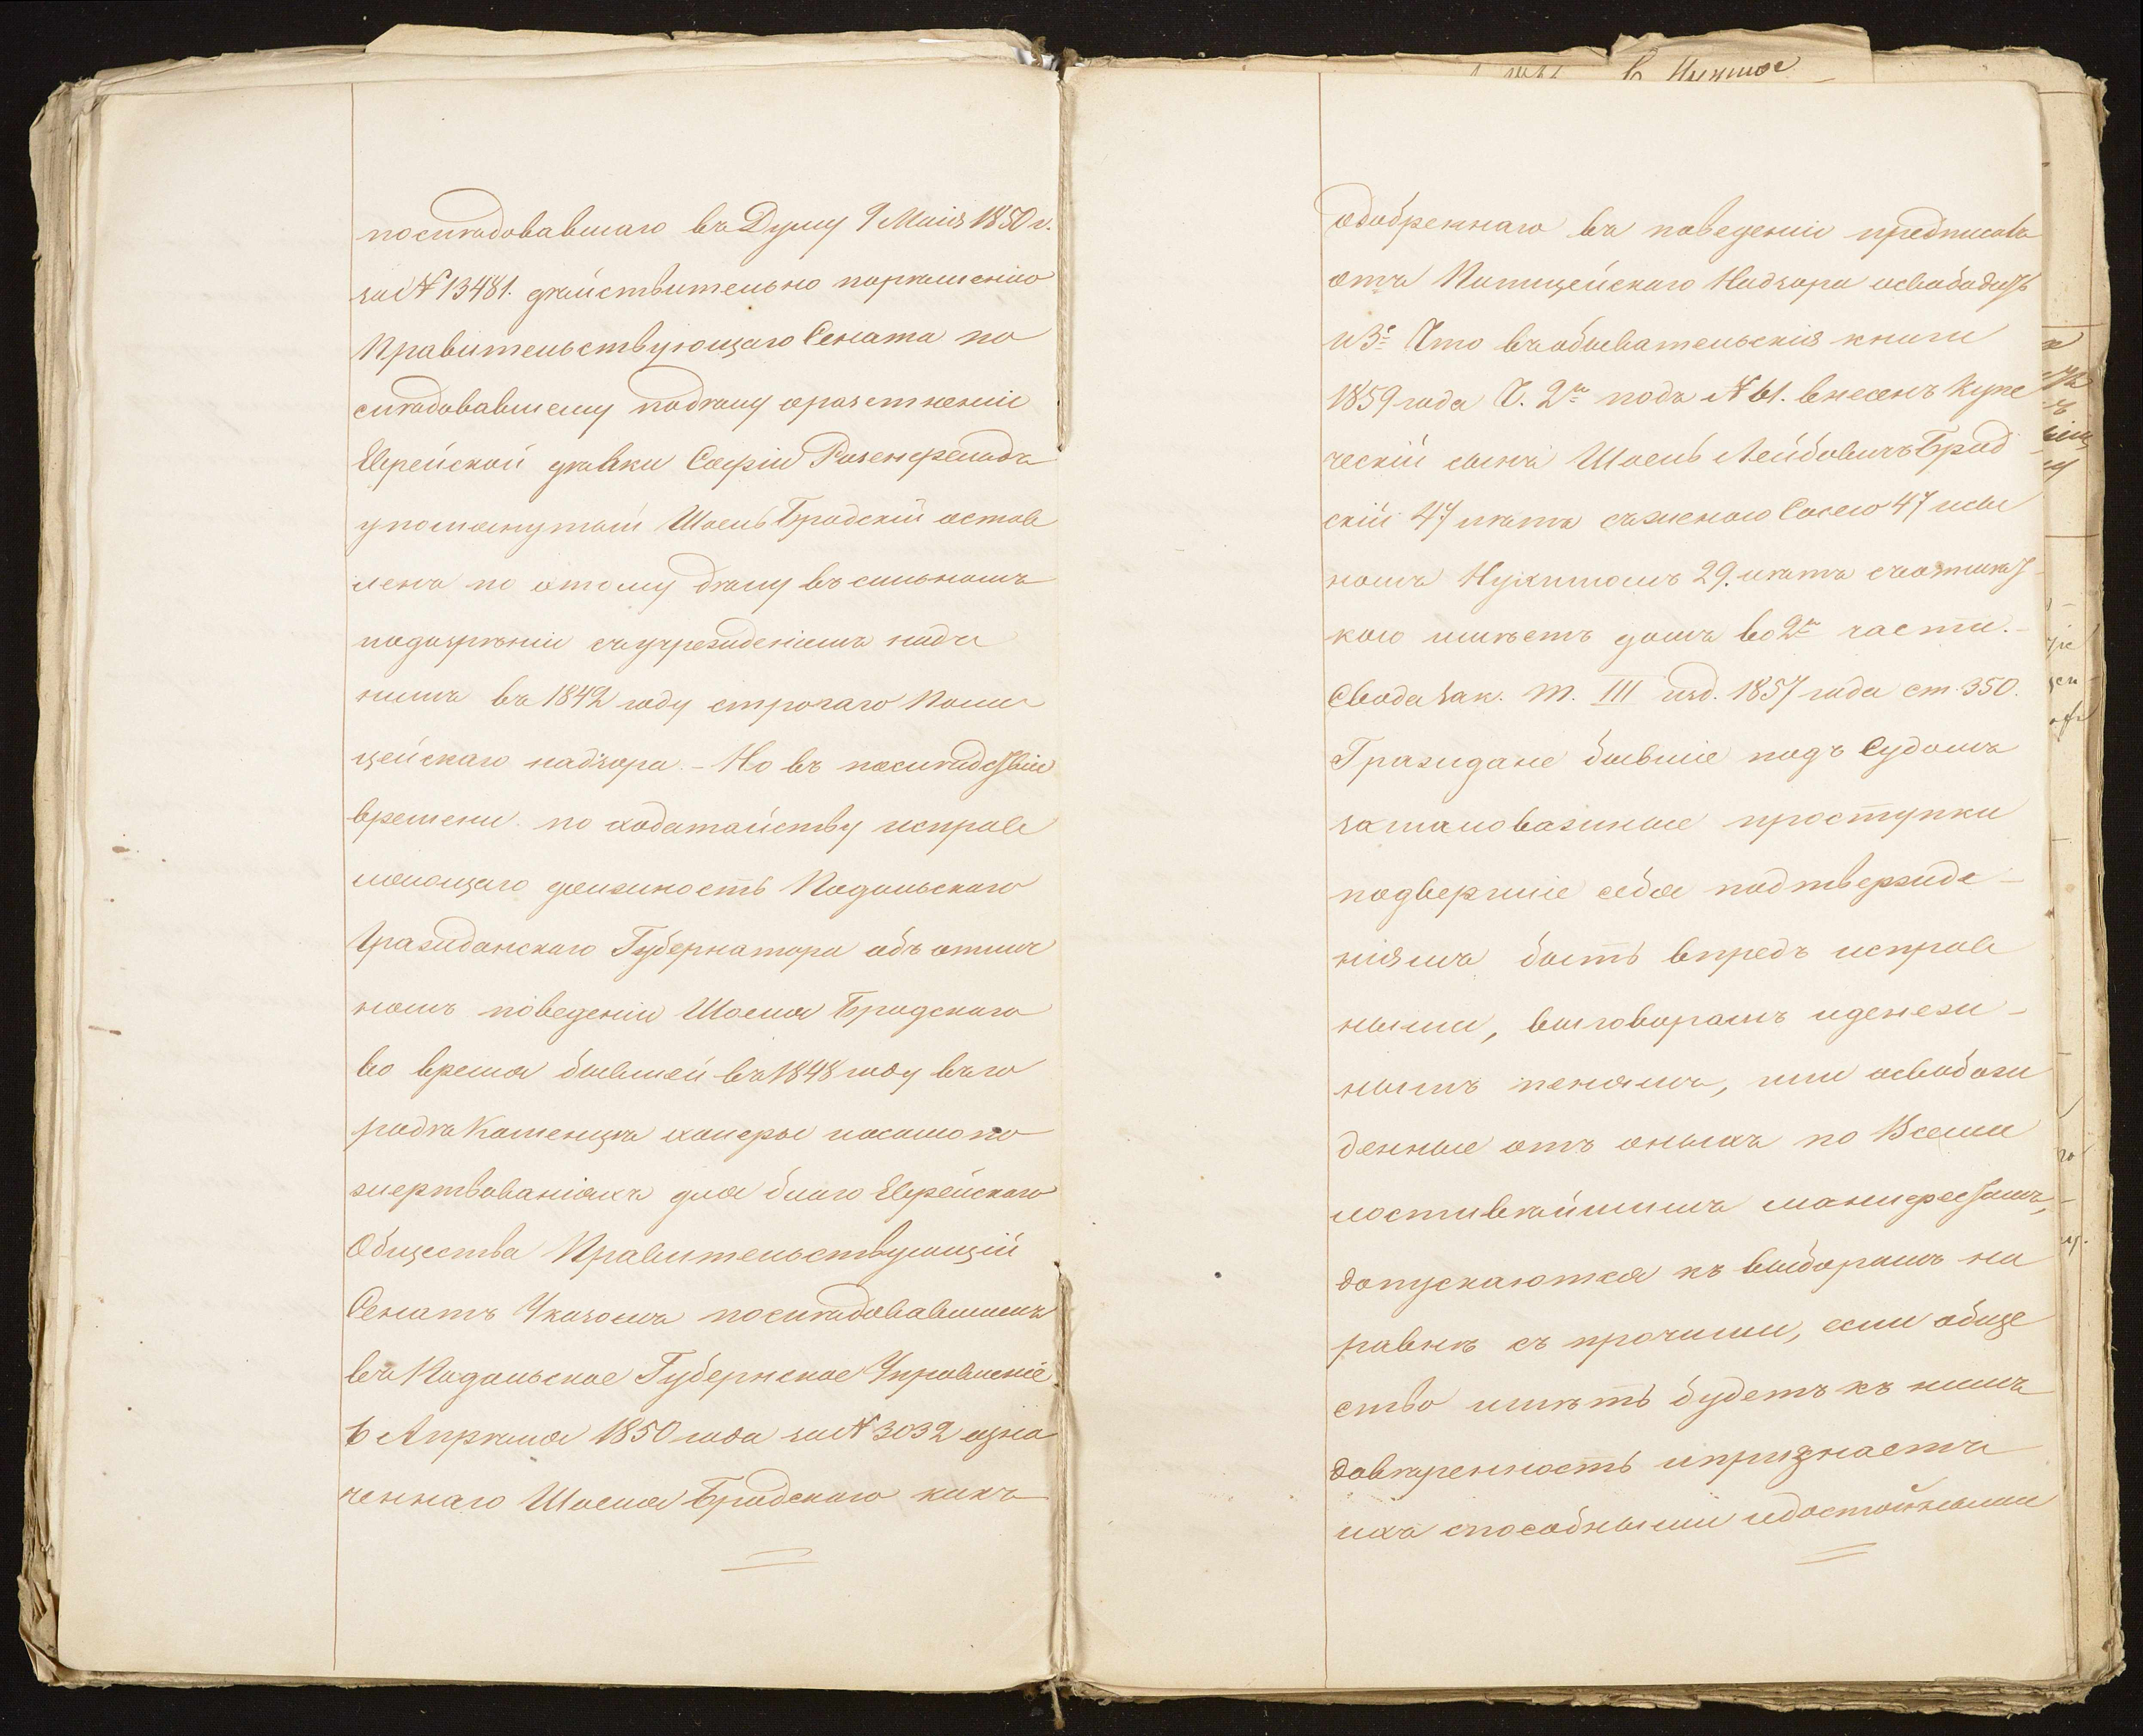 послѣдовавшаго въ Думу 9 Маія 1850 г.
за № 13481. дѣйствительно порѣшенію
Правительствующаго Сената по
слѣдовавшему подѣлу оразстленіи
Еврейской дѣвки Софіи Розенфельдъ
упомянутый Шоель Бродскій остав
ленъ по этому дѣлу въ сильномъ
подозрѣніи съучрежденіемъ надъ
нимъ въ 1842 году строгаго Поли
цейскаго надзора. - Но въ послѣдствіи
времени по ходатайству исправ
ляющаго должность Подольскаго
Гражданскаго Губернатора объ отлич
номъ поведеніи Шоеля Бродскаго
во время бывшей въ 1848 году въго
родѣ Каменцѣ холеры ипо
жертвованіяхъ для благо Еврейскаго
Общества Правительствующій
Сенатъ Указомъ послѣдовавшимъ
въ Подольское Губернское Управленіе
6 Апрѣля 1850 года за № 3032 озна
ченнаго Шоеля Бродскаго какъ
одобреннаго въ поведеніи предписавъ
отъ Полицейскаго Надзора освободить
и 3е Что въобывательскія книги
1859 года Ч. 2й подъ № 61. внесенъ Купе
ческій сынъ Шоель Лейбовичъ Брод
скій 47 лѣтъ съженою Сосею 47 исы
номъ Нухимомъ 29. лѣтъ
кою имѣетъ домъ во 2й части. -
Свода Зак. Т. III изд. 1857 года ст. 350.
Граждане бывшіе подъ Судомъ
замаловажные проступки
подвергшіе себя подтвержде-
ніямъ быть впредь исправ
ными, выговорамъ иденеж-
нымъ пенямъ, или освобож
денные отъ оныхъ по Всеми
лостивѣйшимъ манифестамъ,
допускаются къ выборамъ на
равнѣ съ прочими, если обще
ство имѣть будетъ къ нимъ
довѣренность ипризнаетъ
ихъ способными идостойными